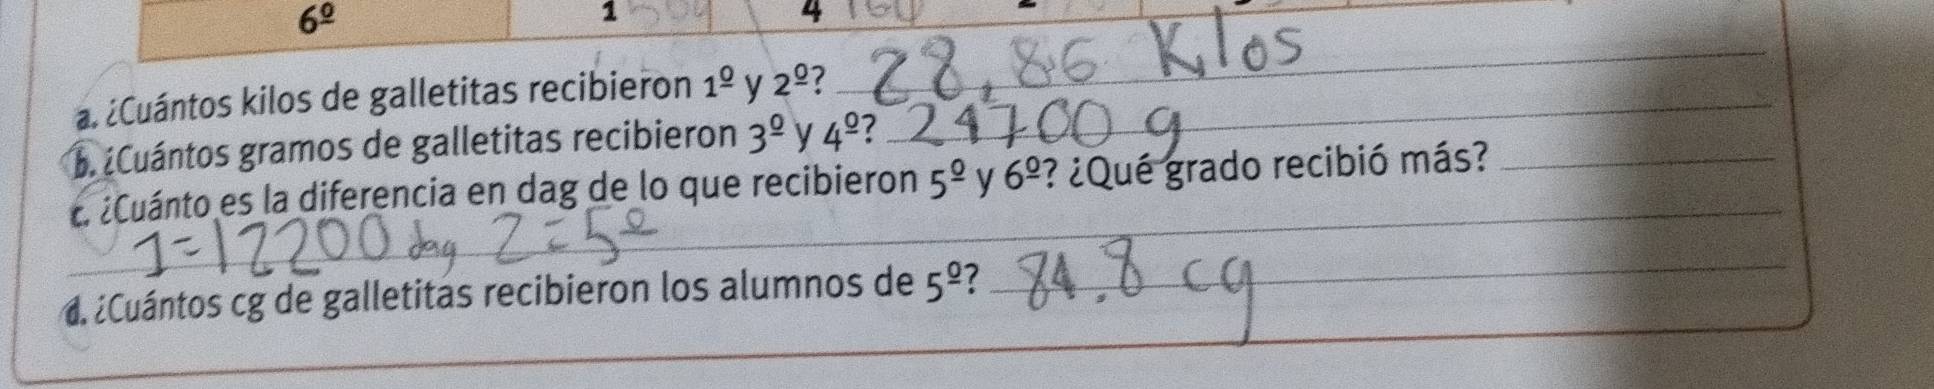 6º 1 4 160
a. ¿Cuántos kilos de galletitas recibieron 1º y 2º? 28,86 Kilos
b. ¿Cuántos gramos de galletitas recibieron 3º y 4º? 24700 g
c. ¿Cuánto es la diferencia en dag de lo que recibieron 5º y 6º? ¿Qué grado recibió más?
1=12200 dag 2=5º
d. ¿Cuántos cg de galletitas recibieron los alumnos de 5º? 84.8 cg